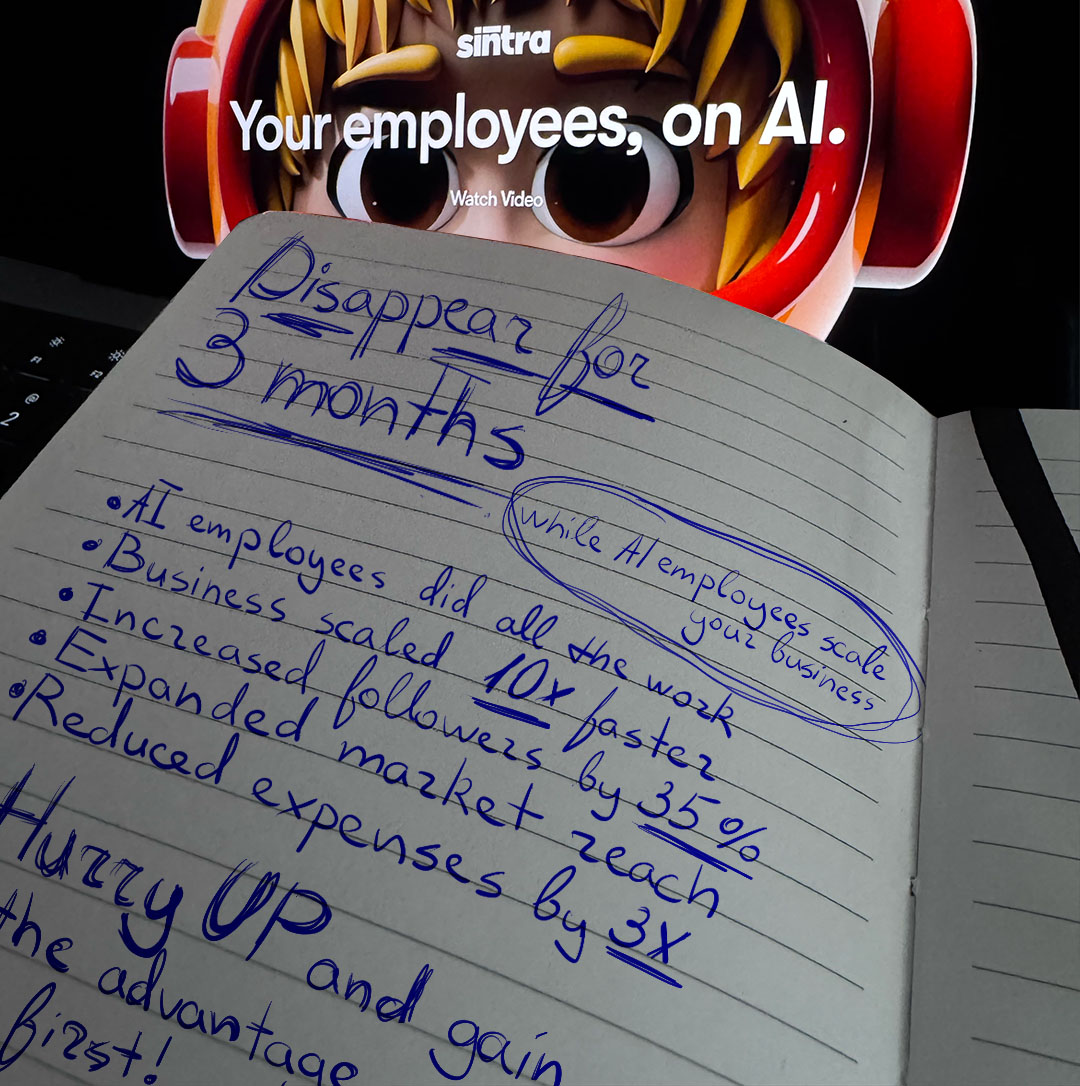 sintra
Your employees, on AI.
Watch Video
Disappear for
3 months
while AI employees scale
your business
• AI employees did all the work
• Business scaled 10x faster
• Increased followers by 35%
• Expanded market reach
• Reduced expenses by 3X
Hurry UP and gain
the advantage
first!
#
#
F1
F2
@
2